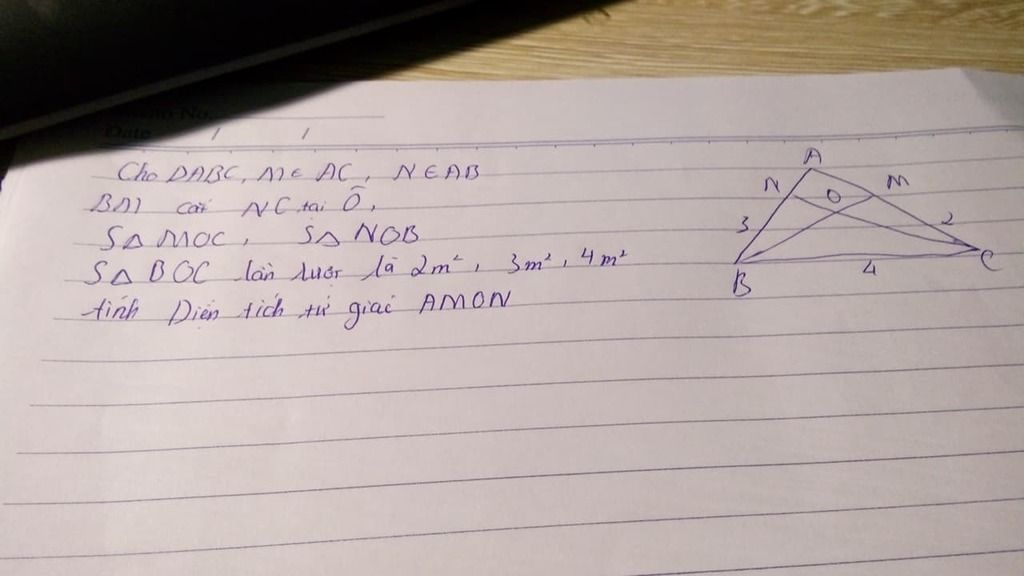 Date / /
Cho DABC, M ∈ AC, N ∈ AB
BM cắt NC tại O,
S△ MOC, S△ NOB
S△ BOC lần lượt là 2m², 3m², 4m²
tính Diện tích tứ giác AMON
A
N
O
M
3
2
B
4
C